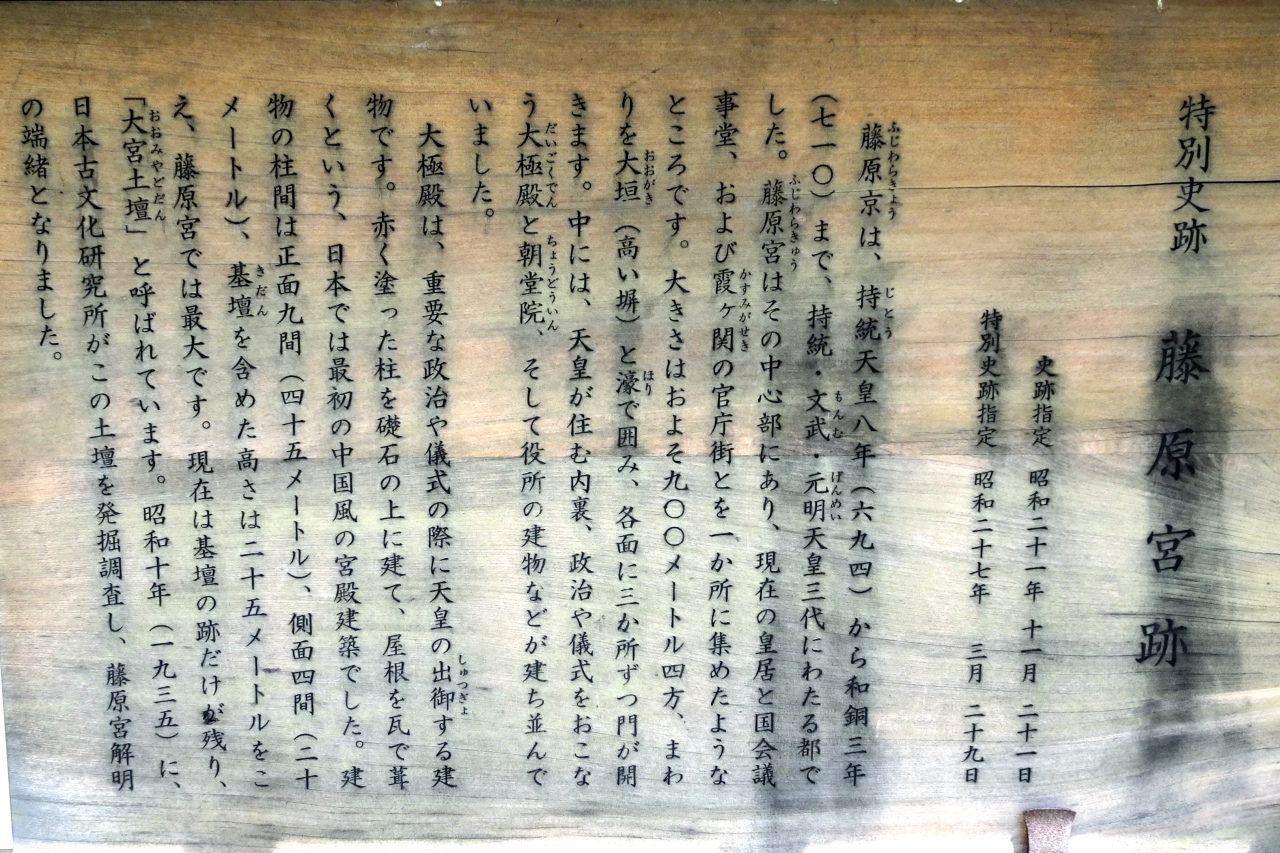 特別史跡　藤原宮跡
史跡指定　昭和二十一年　十一月　二十一日
特別史跡指定　昭和二十七年　三月　二十九日
藤原京は、持統天皇八年（六九四）から和銅三年
（七一〇）まで、持統・文武・元明天皇三代にわたる都で
した。藤原宮はその中心部にあり、現在の皇居と国会議
事堂、および霞ヶ関の官庁街とを一か所に集めたような
ところです。大きさはおよそ九〇〇メートル四方、まわ
りを大垣（高い塀）と濠で囲み、各面に三か所ずつ門が開
きます。中には、天皇が住む内裏、政治や儀式をおこな
う大極殿と朝堂院、そして役所の建物などが建ち並んで
いました。
大極殿は、重要な政治や儀式の際に天皇の出御する建
物です。赤く塗った柱を礎石の上に建て、屋根を瓦で葺
くという、日本では最初の中国風の宮殿建築でした。建
物の柱間は正面九間（四十五メートル）、側面四間（二十
メートル）、基壇を含めた高さは二十五メートルをこ
え、藤原宮では最大です。現在は基壇の跡だけが残り、
「大宮土壇」と呼ばれています。昭和十年（一九三五）に、
日本古文化研究所がこの土壇を発掘調査し、藤原宮解明
の端緒となりました。